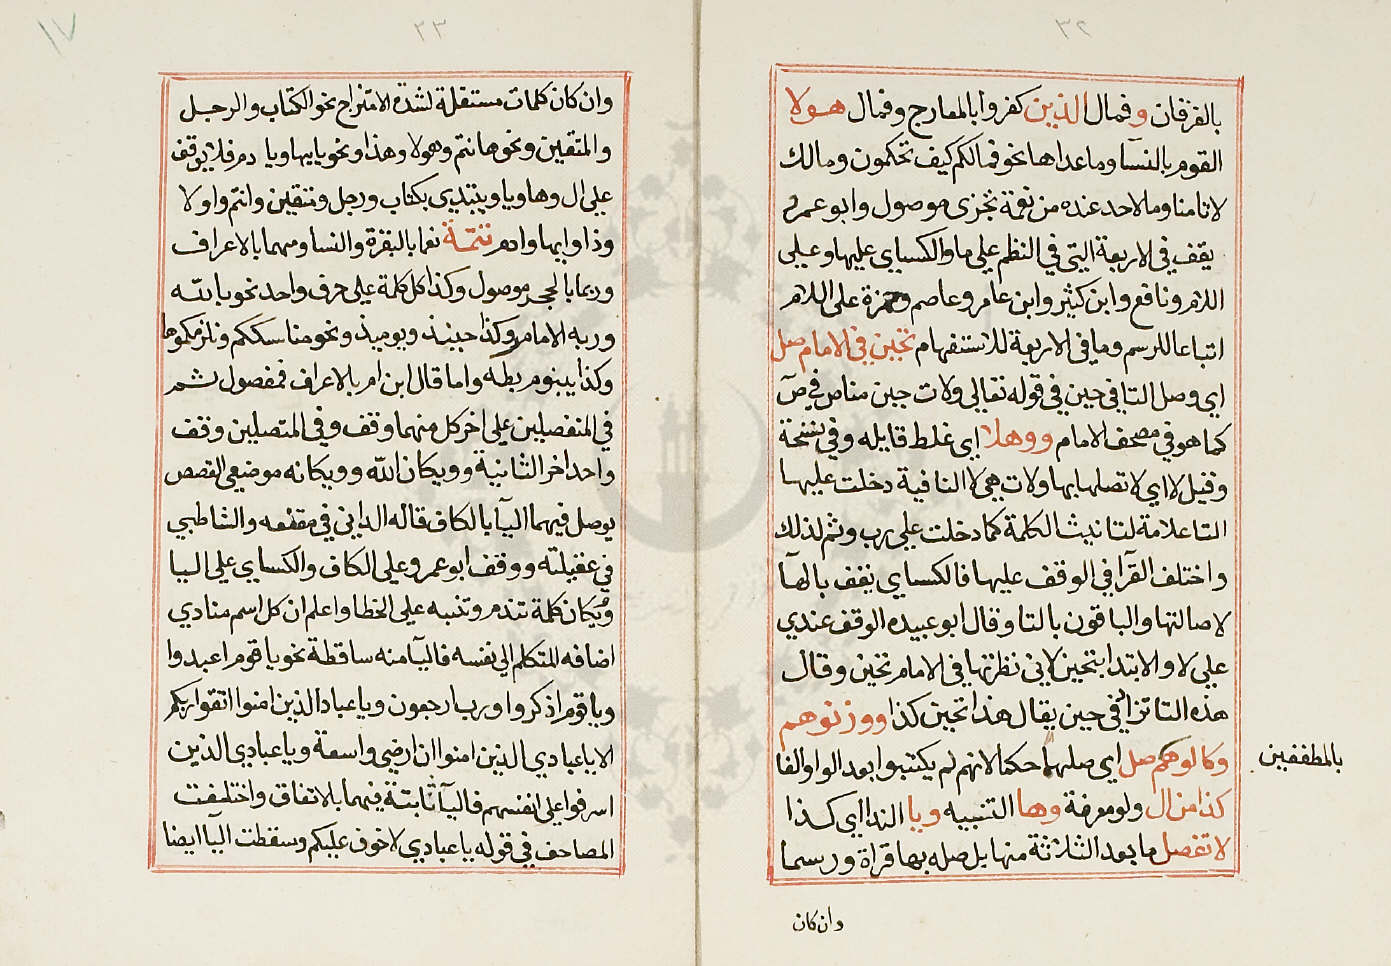 ٣٢
بالفرقان وفمال الذين كفروا بالمعارج وفمال هولا
القوم بالنسآ وما عداها نحو فمالكم كيف تحكمون ومالك
لا تامنا وما لاحد عنده من نعمة تجزى موصول وابو عمرو
يقف في الاربعة التي في النظم علي ما والكساي عليها وعلي
اللام ونافع وابن كثير وابن عامر وعاصم وحمزة علي اللام
اتباعا للرسم وما في الاربعة للاستفهام تحين في الامام صل
اي وصل التا في حين في قوله تعالي ولات حين مناص في صٓ
كما هو في مصحف الامام ووهلا اي غلط قايله وفي نسخة
وقيل لا اي لا تصلها بها ولات هي لا النافية دخلت عليها
التا علامة لتانيث الكلمة كما دخلت علي رب وثم لذلك
واختلف القرآ في الوقف عليها فالكساي يقف بالهآ
لاصالتها والباقون بالتا وقال ابو عبيده الوقف عندي
علي لا والابتدا بتحين لاني نظرتها في الامام تحين وقال
هذه التا تزاد في حين يقال هذا تحين كذا ووزنوهم
وكالوهم صل اي صلهما حكما لانهم لم يكتبوا بعد الواو الفا
بالمطففين
كذا من ال ولو معرفة وها التنبيه ويا الندا اي كذا
لا تفصل ما بعد الثلاثة منها بل صله بها قراة ورسما
وان كان
٣٣
١٧
وان كان كلمات مستقلة لشدة الامتزاج نحو الكتاب والرجل
والمتقين ونحو هانتم وهولا وهذا ونحو يايها ويا دم فلا يوقف
علي ال وها ويا ويبتدي بكتاب ورجل ومتقين وانتم واولا
وذا وايها وادم تتمة نعما بالبقرة والنسا ومهما بالاعراف
وربما بالحجر موصول وكذا كل كلمة علي حرف واحد نحو بالله
وربه الامام وكذا حينيذ ويوميذ ونحو مناسككم ونلزمكموها
وكذا يبنوم بطه واما قال ابن ام بالاعراف فمفصول ثم
في المنفصلين علي اخر كل منهما وقف وفي المتصلين وقف
واحد اخر الثانية وويكان الله وويكانه موضعي القصص
يوصل فيهما اليآ بالكاف قاله الداني في مقنعه والشاطبي
في عقيلته ووقف ابو عمرو علي الكاف والكساي علي اليا
ويكان كلمة تندم وتنبه علي الخطا واعلم ان كل اسم منادي
اضافه المتكلم الي نفسه فاليآ منه ساقطة نحو يا قوم اعبدوا
ويا قوم اذكروا ورب ارجعون ويا عباد الذين امنوا اتقوا ربكم
الا يا عبادي الذين امنوا ان ارضي واسعة ويا عبادي الذين
اسرفوا علي انفسهم فاليآ ثابتة فيهما بلاتفاق واختلفت
المصاحف في قوله يا عبادي لا خوف عليكم وسقطت اليآ ايضا